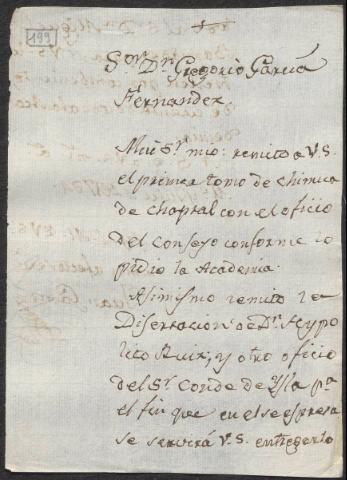 199
Sor. Dn. Gregorio Garcia
Fernandez
Mui Sr. mio: remito a V.S.
el primer tomo de Chimica
de Chaptal con el oficio
del Consejo conforme lo
pidio la Academia.
Asimismo remito la
Disertacion de Dn. Hypo
lito Ruiz; y otro oficio
del Sr. Conde de Ysla pa.
el fin que en el se espresa
se servirá V.S. entregarlo